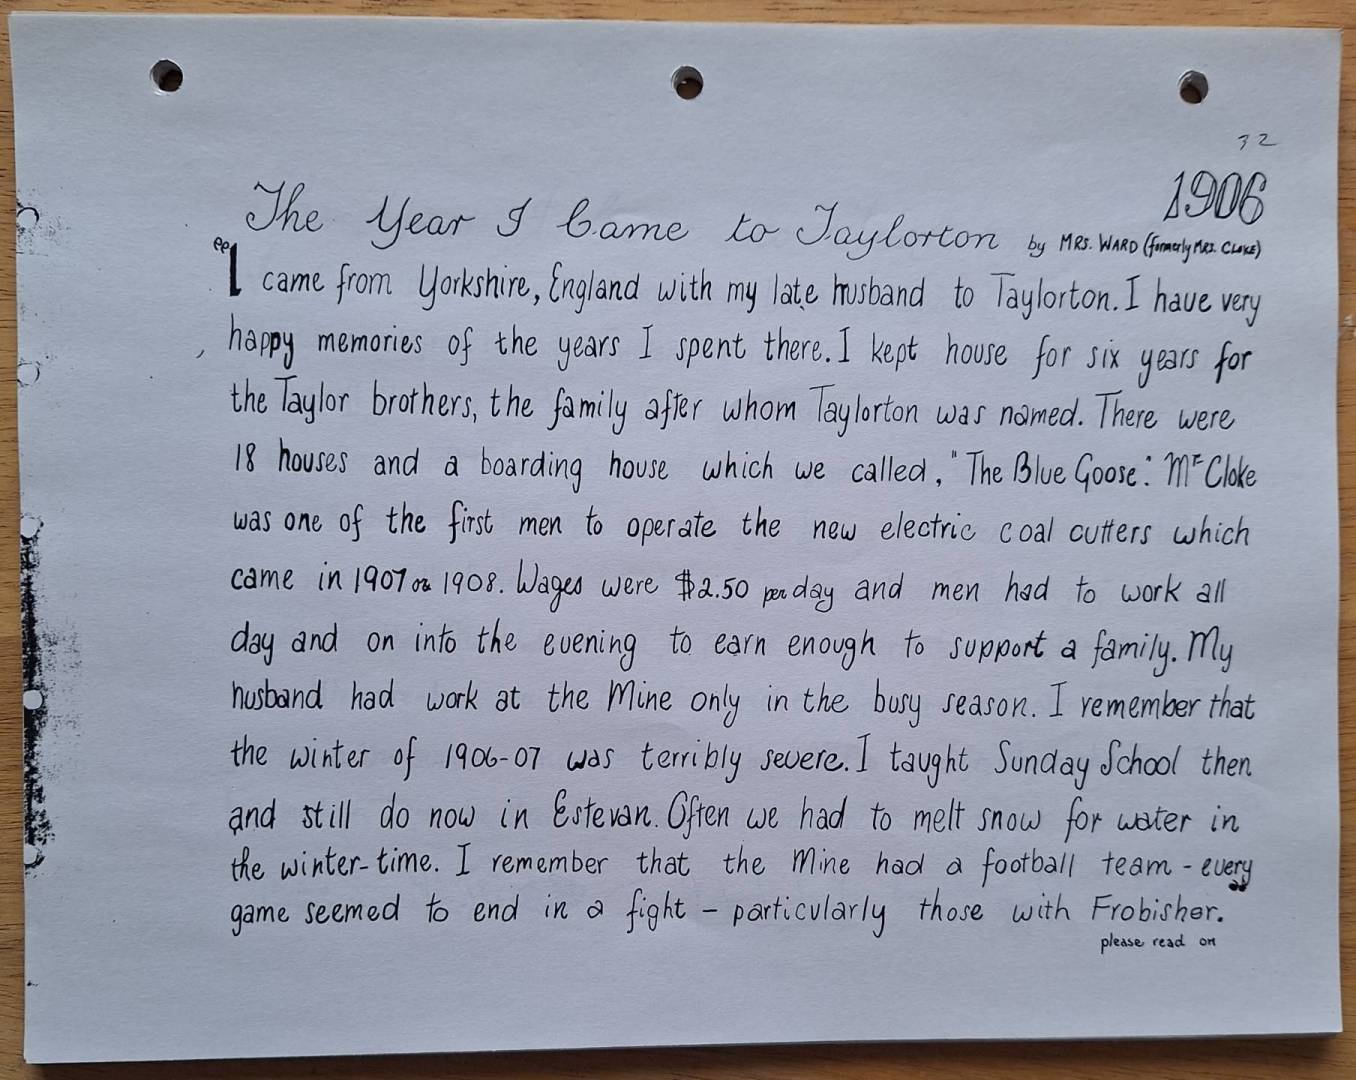 32
1906
The Year I Came to Taylorton by MRS. WARD (formerly MRS. CLOKE)
"I came from Yorkshire, England with my late husband to Taylorton. I have very
happy memories of the years I spent there. I kept house for six years for
the Taylor brothers, the family after whom Taylorton was named. There were
18 houses and a boarding house which we called, "The Blue Goose". Mr Cloke
was one of the first men to operate the new electric coal cutters which
came in 1907 or 1908. Wages were $2.50 per day and men had to work all
day and on into the evening to earn enough to support a family. My
husband had work at the Mine only in the busy season. I remember that
the winter of 1906-07 was terribly severe. I taught Sunday School then
and still do now in Estevan. Often we had to melt snow for water in
the winter-time. I remember that the Mine had a football team - every
game seemed to end in a fight - particularly those with Frobisher.
please read on